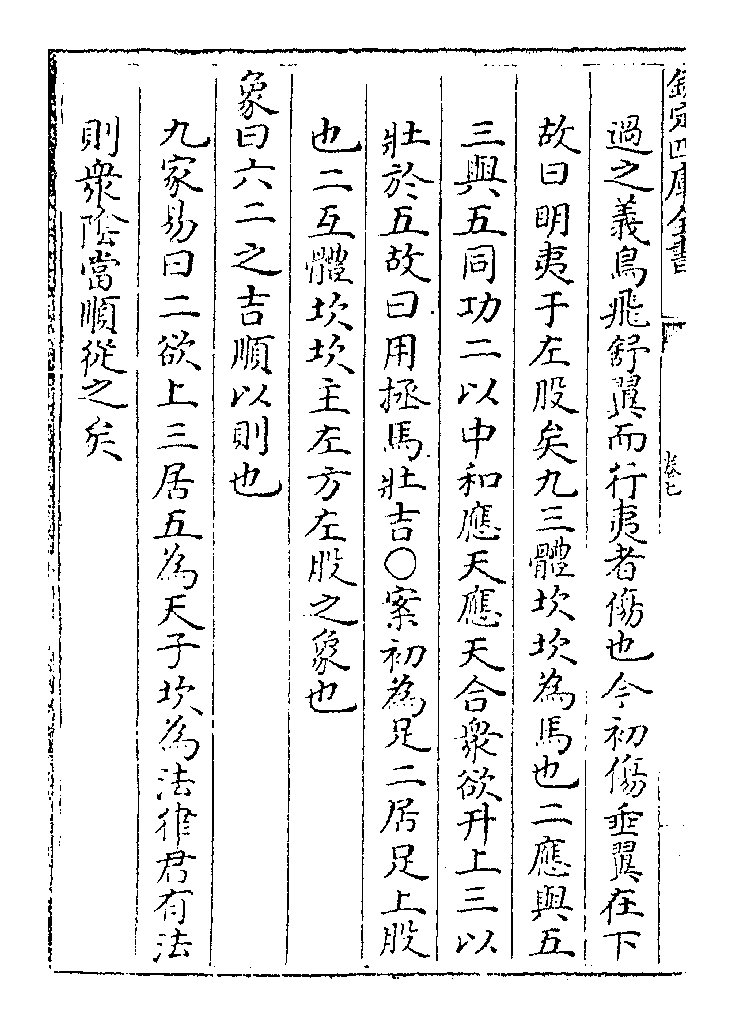 欽定四庫全書
卷七
過之義鳥飛舒翼而行夷者傷也今初傷垂翼在下
故曰明夷于左股矣九三體坎坎為馬也二應與五
三與五同功二以中和應天應天合衆欲升上三以
壯於五故曰用拯馬壯吉〇案初為足二居足上股
也二互體坎坎主左方左股之象也
象曰六二之吉順以則也
九家易曰二欲上三居五為天子坎為法律君有法
則衆陰當順從之矣